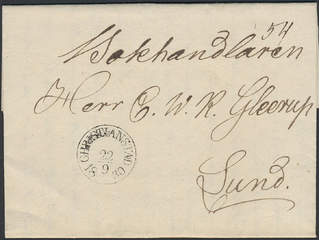 54
Bokhandlaren
Herr C. W. K. Gleerup
Lund.
CHRISTIANSTAD
22
9